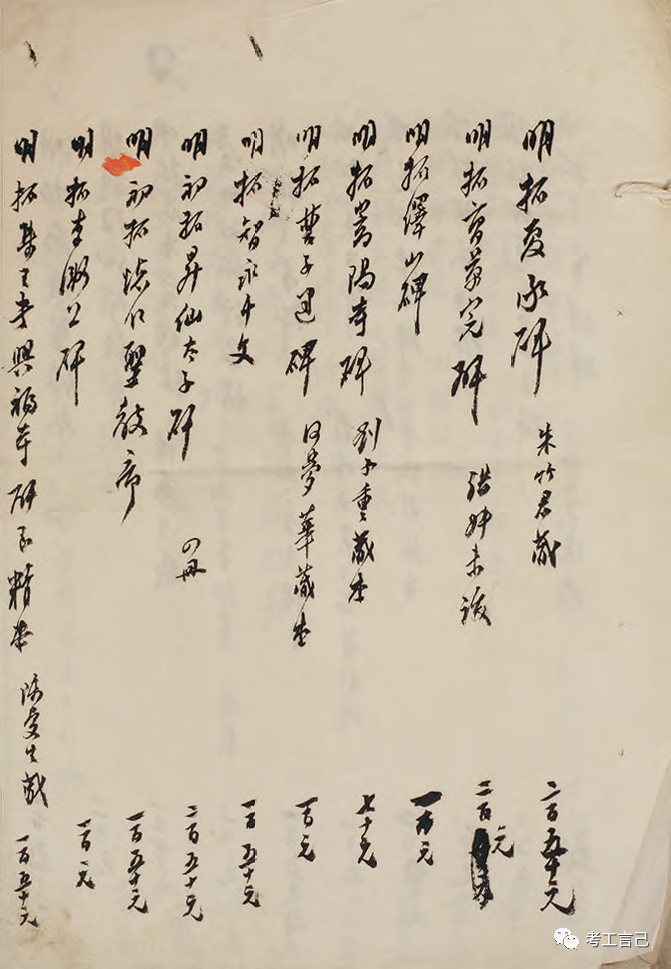 明拓夏承碑 朱竹君藏 二百五十元
明拓曹景完碑 張叔未跋 二百元
明拓繹山碑 一百元
明拓嵩陽寺碑 劉子重藏本 七十元
明拓曹子建碑 何夢華藏本 一百元
明拓智永千文 一百五十元
明初拓昇仙太子碑 四册 二百五十元
明初拓懷仁聖教序 一百五十元
明拓李衛公碑 一百元
明拓集王書興福寺碑 精本 陳曼生藏 一百五十元
考工言己